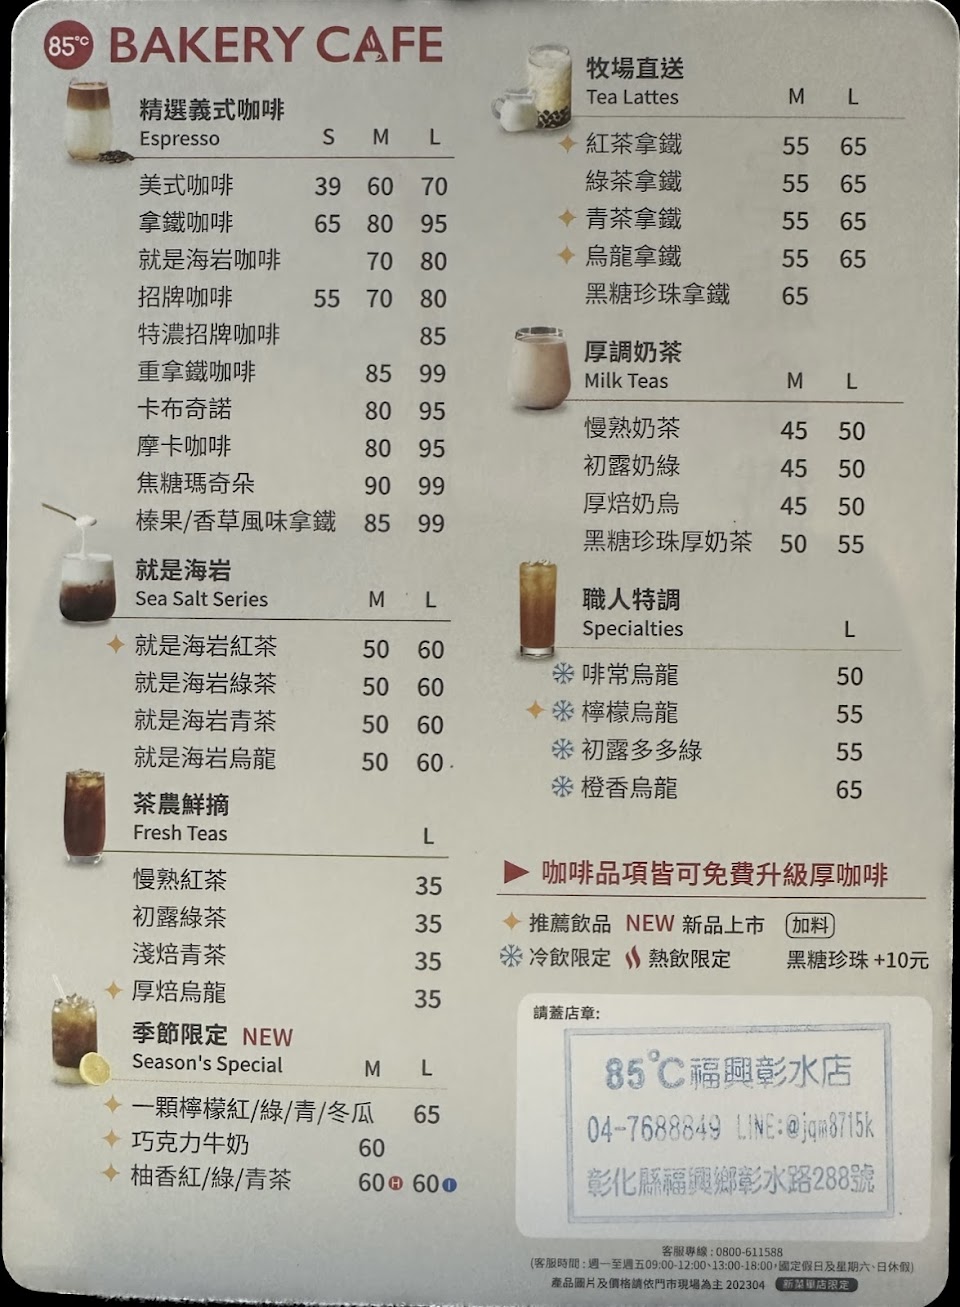 85°C BAKERY CAFE
精選義式咖啡
Espresso S M L
美式咖啡 39 60 70
拿鐵咖啡 65 80 95
就是海岩咖啡 70 80
招牌咖啡 55 70 80
特濃招牌咖啡 85
重拿鐵咖啡 85 99
卡布奇諾 80 95
摩卡咖啡 80 95
焦糖瑪奇朵 90 99
榛果/香草風味拿鐵 85 99
就是海岩
Sea Salt Series M L
就是海岩紅茶 50 60
就是海岩綠茶 50 60
就是海岩青茶 50 60
就是海岩烏龍 50 60
茶農鮮摘
Fresh Teas L
慢熟紅茶 35
初露綠茶 35
淺焙青茶 35
厚焙烏龍 35
季節限定 NEW
Season's Special M L
一顆檸檬紅/綠/青/冬瓜 65
巧克力牛奶 60
柚香紅/綠/青茶 60 H 60 I
牧場直送
Tea Lattes M L
紅茶拿鐵 55 65
綠茶拿鐵 55 65
青茶拿鐵 55 65
烏龍拿鐵 55 65
黑糖珍珠拿鐵 65
厚調奶茶
Milk Teas M L
慢熟奶茶 45 50
初露奶綠 45 50
厚焙奶烏 45 50
黑糖珍珠厚奶茶 50 55
職人特調
Specialties L
啡常烏龍 50
檸檬烏龍 55
初露多多綠 55
橙香烏龍 65
▶ 咖啡品項皆可免費升級厚咖啡
推薦飲品 NEW 新品上市 加料
冷飲限定 熱飲限定 黑糖珍珠+10元
請蓋店章:
85°C福興彰水店
04-7688849 LINE:@jqm8715k
彰化縣福興鄉彰水路288號
客服專線:0800-611588
(客服時間:週一至週五09:00-12:00、13:00-18:00,國定假日及星期六、日休假)
產品圖片及價格請依門市現場為主 202304 新菜單店限定